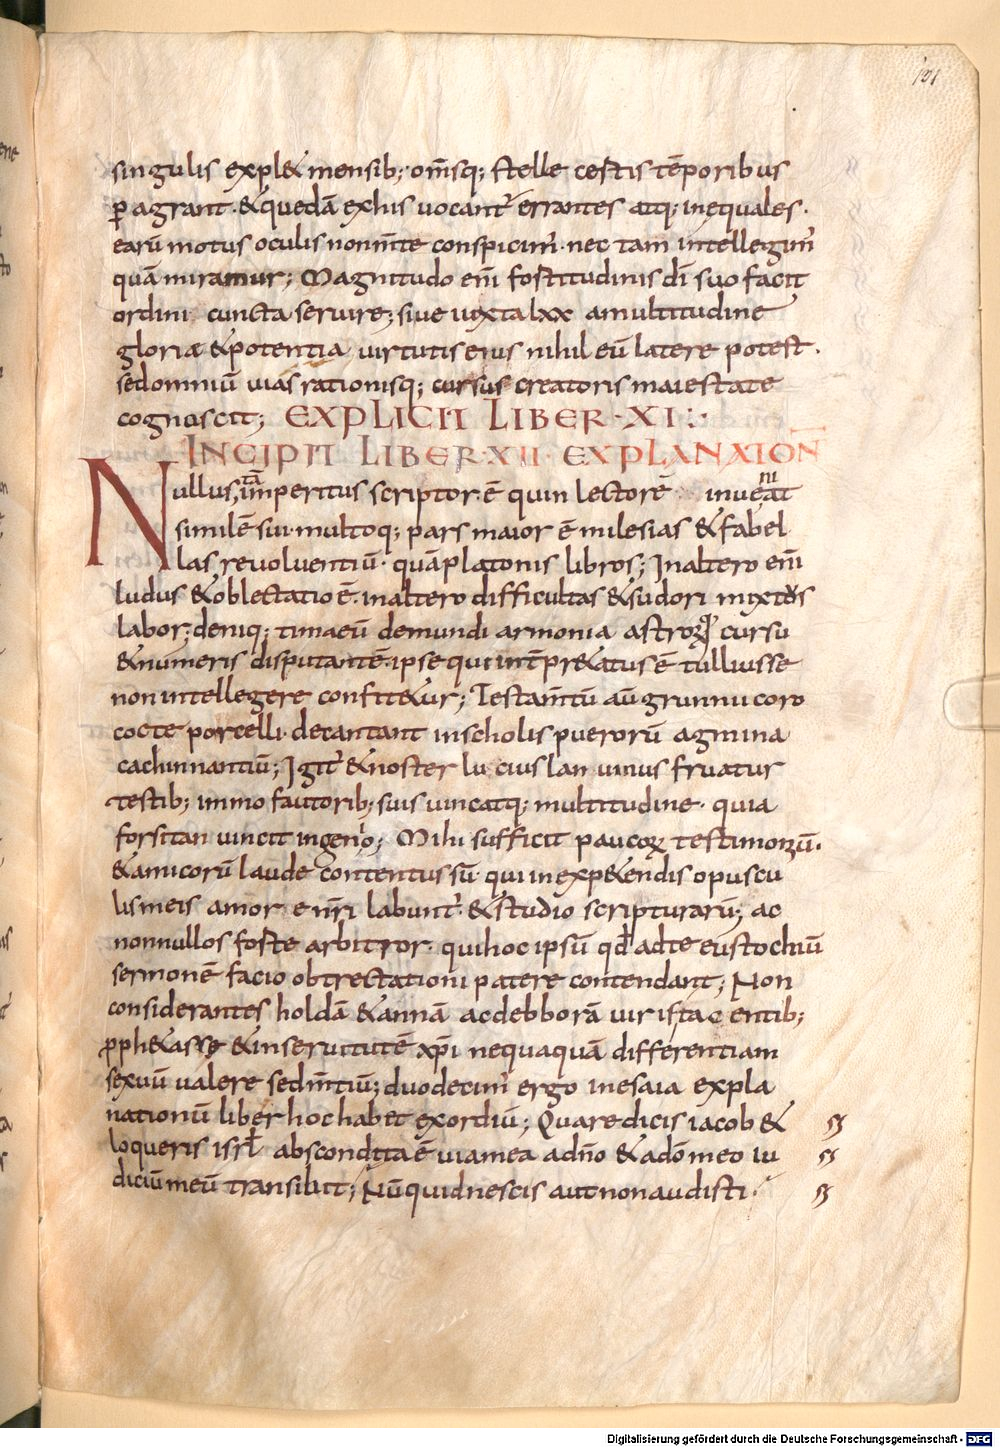 191
singulis expl& mensib; om̅sq; stelle cestis te̅poribus
p̲agrant · & queda̅ exhis uocant̉ errantes atq; inequales ·
earu̅ motus oculis nonm̅te conspicim̉ · nec tam intellegim̉
qua̅ miramur; Magnitudo eni̅ fostitudinis di̅ suo facit
ordini cuncta seruire; siue iuxta lxx amultitudine
gloriæ & potentia uirtutis eius nihil eu̅ latere potest ·
sedomniu̅ uias rationisq; cursus creatoris maiestate
cognoscit; EXPLICIT LIBER · XI :·
INCIPIT LIBER · XII · EXPLANATION̅
Nullus, ta̅ imperitus scriptor · e̅ quin lectore̅ inueniat
simile̅ sui · multoq; pars maior e̅ milesias & fabel
las reuoluentiu̅ · qua̅ platonis libros; Inaltero eni̅
ludus & oblectatio e̅ · inaltero difficultas & sudori mixtus
labor; deniq; timaeu̅ demundi armonia astroꝝq; cursu
& numeris disputante̅ · ipse qui int̅pr&atus e̅ tulliusse
non intellegere confit&ur; Testam̅tu̅ au̅ grunnii coro
cocte porcelli · decantant inscholis pueroru̅ agmina
cachinnantiu̅; Igit̉ & noster luciuslanuinus fruatur
testib; immo fautorib; suis uincatq; multitudine · quia
forsitan uincit ingenio; Mihi sufficit paucoꝝ testimoniu̅ ·
& amicoru̅ laude contentus su̅ · qui inexp&endis opuscu
lis meis amore nr̅i labunt̉ · & studio scripturaru̅; ac
nonnullos foste arbitror · quihoc ipsu̅ qd̅ adte eustochiu̅
sermone̅ facio obtrectationi patere contendant; Non
considerantes holda̅ & anna̅ acdebbora̅ uiris tacentib;
ꝓph&asse & inseruitute̅ xp̅i nequaqua̅ differentiam
sexuu̅ ualere sedm̅tiu̅; duodecim̉ ergo inesaia expla
nationu̅ liber hoc habet exordiu̅; Quare dicis iacob &
loqueris isrl̅ abscondita e̅ uiamea adn̅o & ado̅ meo iu
diciu̅ meu̅ transibit; Nu̅quid nescis aut non audisti ·
Digitalisierung gefördert durch die Deutsche Forschungsgemeinschaft - DFG